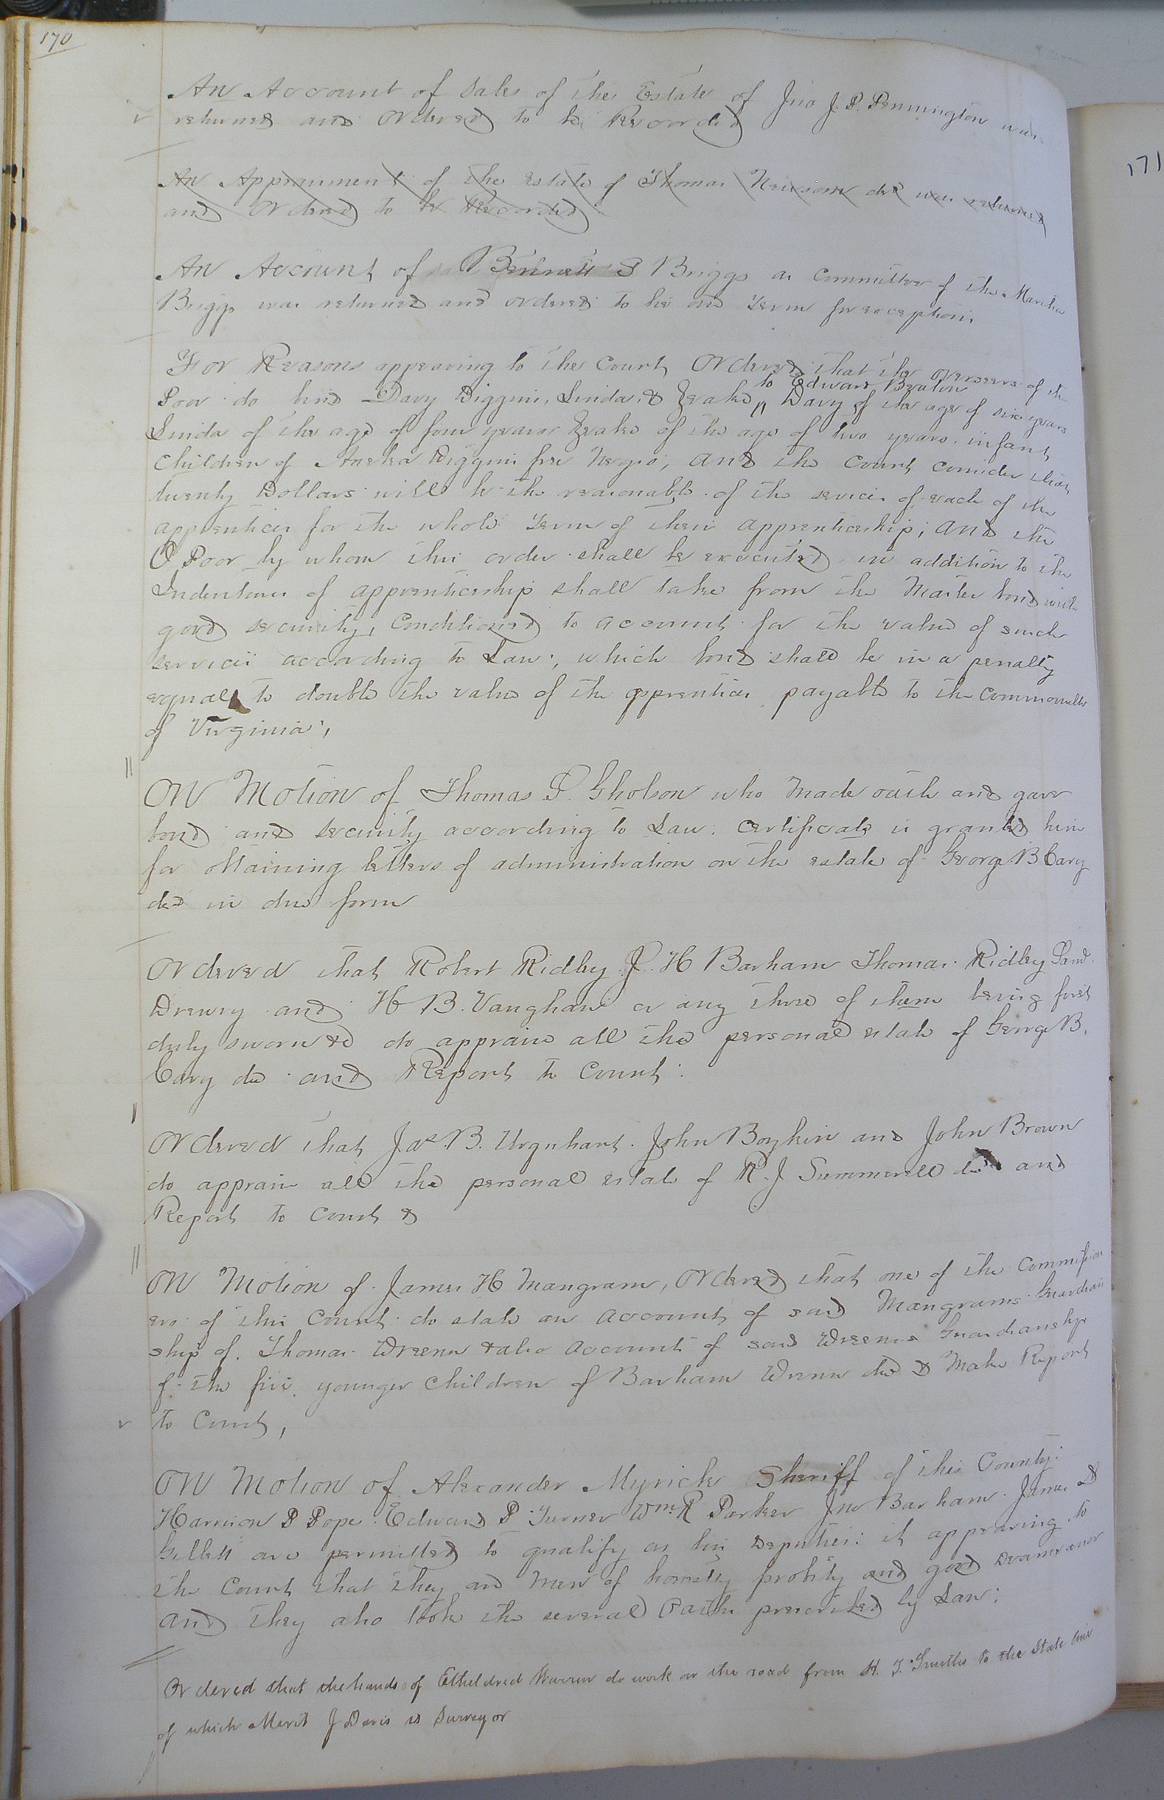 170
An Account of Sales of the Estate of Jno J. P. Pennington was
returned and Ordered to be Recorded
An Appraisment of the Estate of Thomas Newsom decd was returned
and Ordered to be Recorded
An Account of Bennett S Briggs as Committee of the Martha
Briggs was returned and ordered to lie one Term for exceptions
For Reasons appearing to the Court Ordered that the overseers of the
to Edward Beaton
Poor do bind Davy Diggins, Linda, & Zeake " Davy of the age of six years
Linda of the age of four years Zeake of the age of two years infant
Children of Diggins free Negro, and the Court consider that
twenty Dollars will be the reasonable of the service of each of the
apprentices for the whole Term of their apprenticeship; and the
O Poor by whom this order shall be executed in addition to the
Indentures of apprenticeship shall take from the Master bond with
good security, Conditioned to account for the value of such
services according to Law; which bond shall be in a penalty
equal to double the value of the apprentices payable to the Commonwealth
of Virginia;
On Motion of Thomas P. Gholson who made oath and gave
bond and security according to Law. Certificate is granted him
for obtaining letters of administration on the estate of George B Cary
decd in due form
Ordered that Robert Ridley J. H Barham Thomas Ridley Saml.
Drewry and H B. Vaughan or any three of them being first
duly sworn &c do appraise all the personal estate of George B.
Cary decd and Report to Court.
Ordered that Jas. B. Urquhart. John Boykin and John Brown
do appraise all the personal estate of R. J Summerell decd and
Report to Court &
On Motion of James H Mangram, Ordered that one of the Commission
ers of this Court do state an account of said Mangrams Guardian
ship of Thomas Wrenn & also account of said Wrenns Guardianship
of the five younger Children of Barham Wrenn decd & Make Report
to Court,
On Motion of Alexander Myrick Sheriff of this County;
Harrison P Pope. Edward P Turner Wm. R Parker Jno Barham James D
Gillett are permitted to qualify as his Deputies: it appearing to
the Court that they are Men of honesty probity and good demeanor
and they also took the several Oaths prescribed by Law:
Ordered that the hands of Etheldred Warren do work on the road from H. T. Smiths to the State line
of which Merit J Davis is Surveyor
171